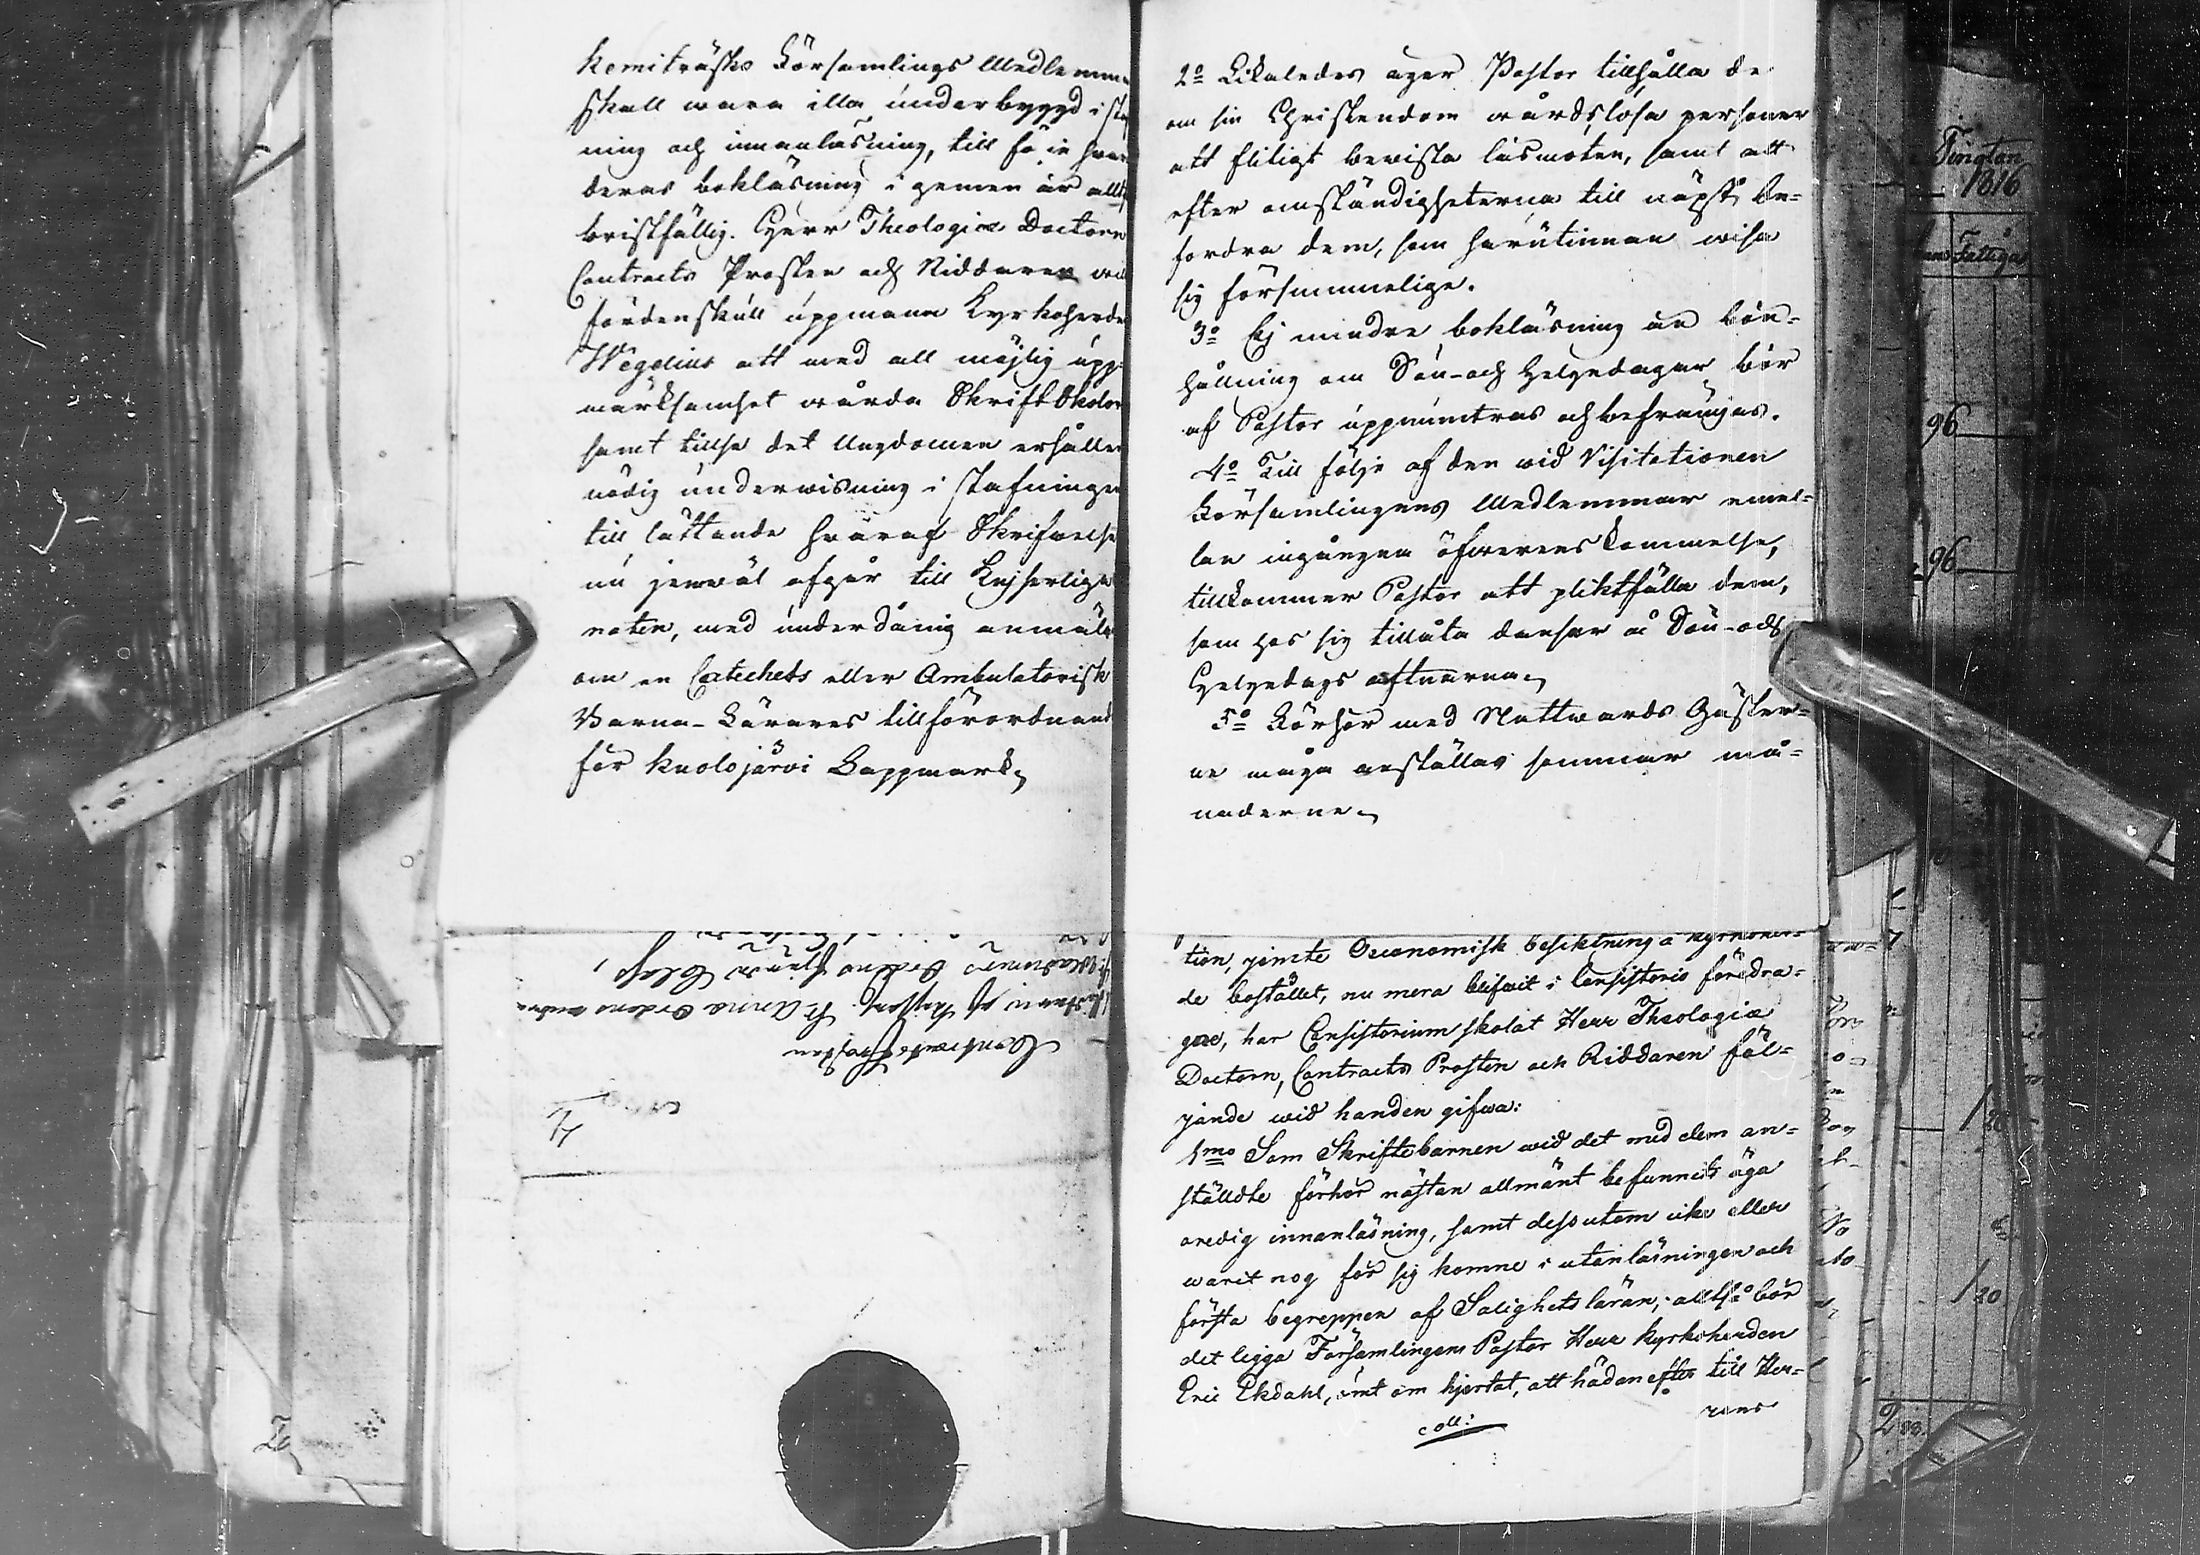 Kemiträsks Församlings Medlemmar
skall wara illa underbyggd i staf
ning och innanläsning, till fö
deras bokläsning i gemen är allt
bristfällig. Herr Theologiæ Doctorn
Contracts Prosten och Riddaren
fördenskull uppmana Kyrkoherde
Wegelius att med all möjlig upp-
märksamhet wårda Skrift Skolor
samt tillse det Ungdomen erhåller
nödig underwisning i stafningen
till lättande hwaraf Skrifwelse
nu jemwäl afgår till Kejserliga
naten, med underdånig anmäla
om en Catechets eller Ambulatorisk
Barna-Lärares tillförordnand
för Kuolojärvi Lappmark,
Contracts Prosten
och Riddaren St Anna Ordens andra
Wladimirs Ordens Class,
2o Likaledes äger Pastor tillhålla de
om sin Christendom wårdslösa personer
att flitigt bewista läsmöten, samt att
efter omständigheterna till näpst be-
fordra dem, som härutinnan wisa
sig försummelige.
3o Ej mindre bokläsning än bön-
hållning om Sön- och Helgedagar bör
af Pastor uppmuntras och befrämjas.
4o Till följe af den wid Visitationen
Församlingens Medlemmar emel-
lan ingångna öfwerenskommelse,
tillkommer Pastor att pliktfälla dem,
som hos sig tillåta dansar å Sön- och
Helgedags aftnarna,
5o Förhör med Nattwards Gäster-
ne måga anställas sommar må-
naderne,
tion, jemte Oeconomisk besiktning å Kyrkoher-
de bostället, nu mera blifwit i Consistorio föredra-
gne, har Consistorium skolat Herr Theologiæ
Doctorn, Contracts Prosten och Riddaren föl-
jande wid handen gifwa:
1mo Som Skriftebarnen wid det med dem an-
stäldte förhör nästan allmänt befunnits äga
oredig innanläsning, samt dessutom icke eller
warit nog för sig komne i utanläsningen och
första begreppen af Salighets läran; alltså bör
det ligga Församlingens Pastor Herr Kyrkoherden
Eric Ekdahl, ömt om hjertat, att hädanefter till Her-
rans
coll:
Tington
1816
Fattiga
96
96
1 20
2